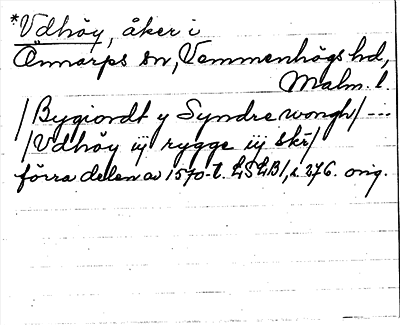 *Vdhöy, åker i
Önnarps sn, Vemmenhögs hd,
Malm. l.
/Bygiordt y Syndre wongh/ ---
/Vdhöy iij rygge iij skr/
förra delen av 1570-t. LSLB1, s. 276. orig.